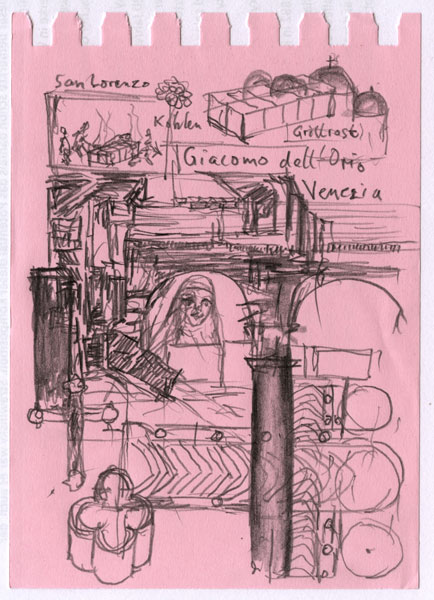 San Lorenzo
Kohlen
Grillrost
Giacomo dall'Orio
Venezia